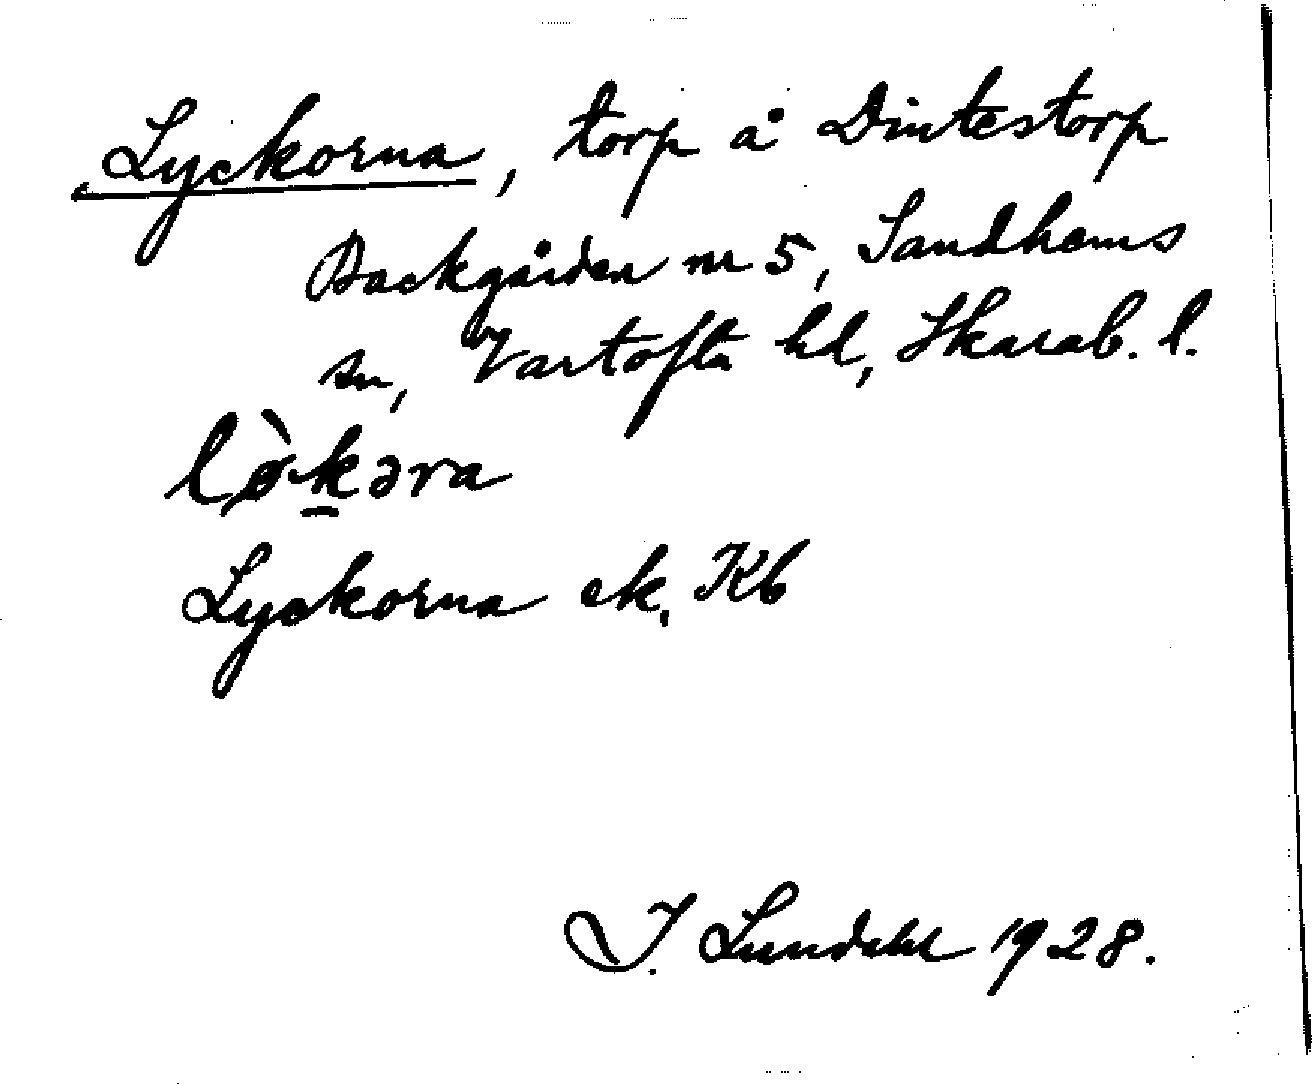 Lyckorna, torp å Dintestorp
Backgården nr 5, Sandhems
sn, Vartofta hd, Skarab. l.
lø̀kəra
Lyckorna ek, Kb
I. Lundahl 1928.